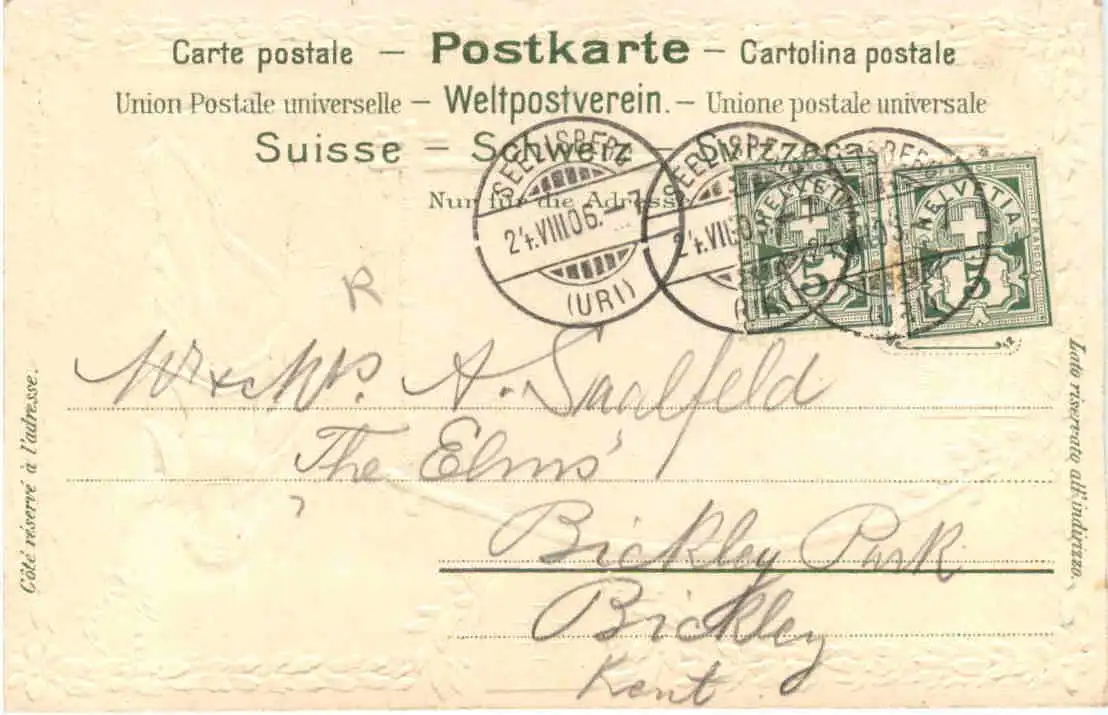 Carte postale — Postkarte — Cartolina postale
Union Postale universelle — Weltpostverein. — Unione postale universale
Suisse — Schweiz — Svizzera
Nur für die Adresse
SEELISBERG
24.VIII.06.–7
(URI)
SEELISBERG
24.VIII.0
(URI)
HELVETIA
5
HELVETIA
5
R
Mr & Mrs. A. Saalfeld
"The Elms"
Bickley Park
Bickley
Kent
Côté réservé à l'adresse.
Lato riservato all'indirizzo.